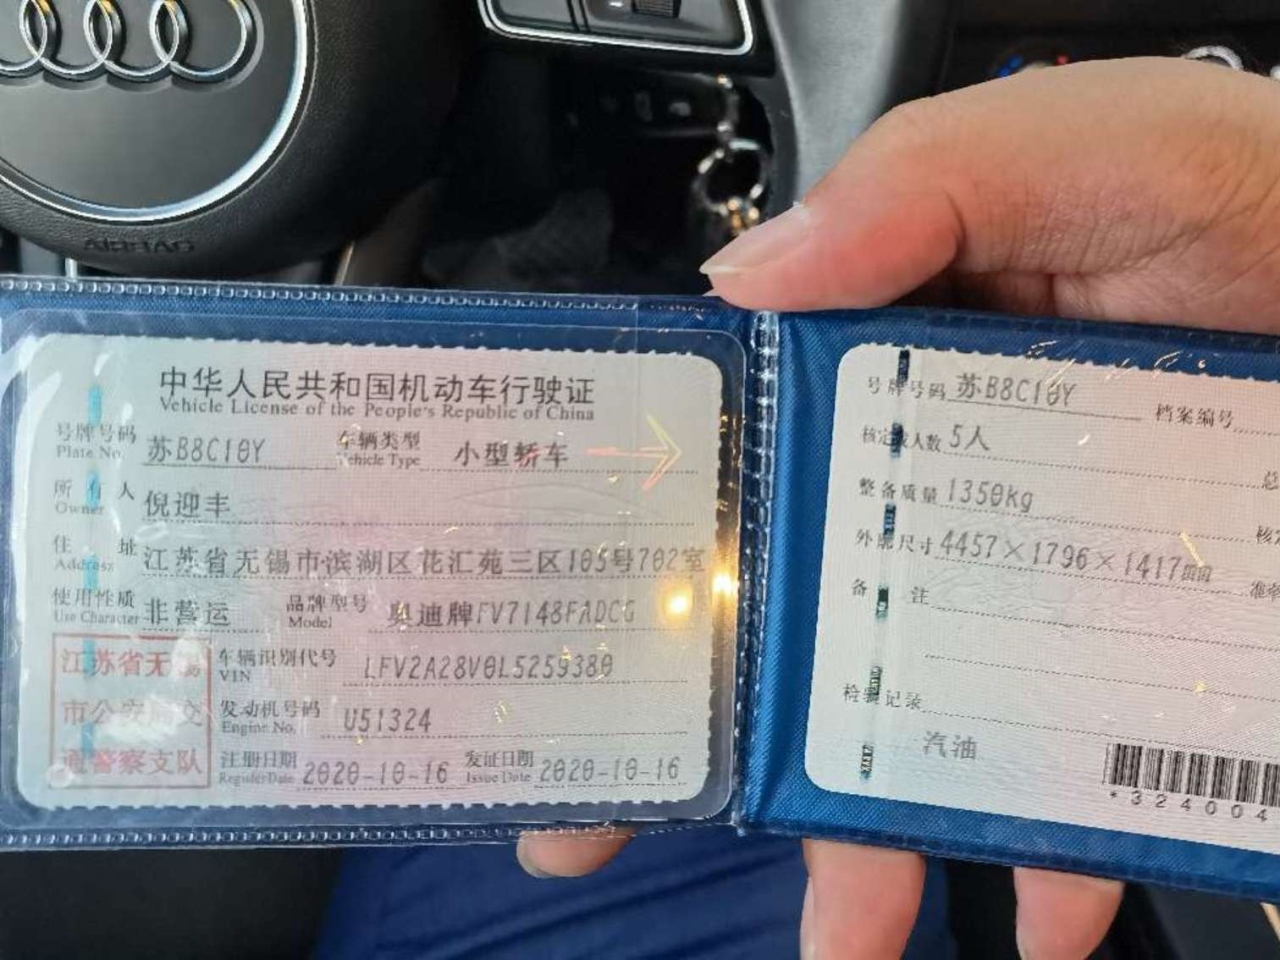 AIRBAG
中华人民共和国机动车行驶证
Vehicle License of the People's Republic of China
号牌号码 苏B8C10Y 车辆类型 小型轿车
Plate No. Vehicle Type
所有人 倪迎丰
Owner
住址 江苏省无锡市滨湖区花汇苑三区105号702室
Address
使用性质 非营运 品牌型号 奥迪牌FV7148FADCG
Use Character Model
江苏省无锡
市公安局交
通警察支队
车辆识别代号 LFV2A28V0L5259380
VIN
发动机号码 U51324
Engine No.
注册日期 2020-10-16 发证日期 2020-10-16
Register Date Issue Date
号牌号码 苏B8C10Y 档案编号
核定载人数 5人
总
整备质量 1350kg
核定
外廓尺寸 4457×1796×1417mm
准牵
备注
检验记录
汽油
*324004